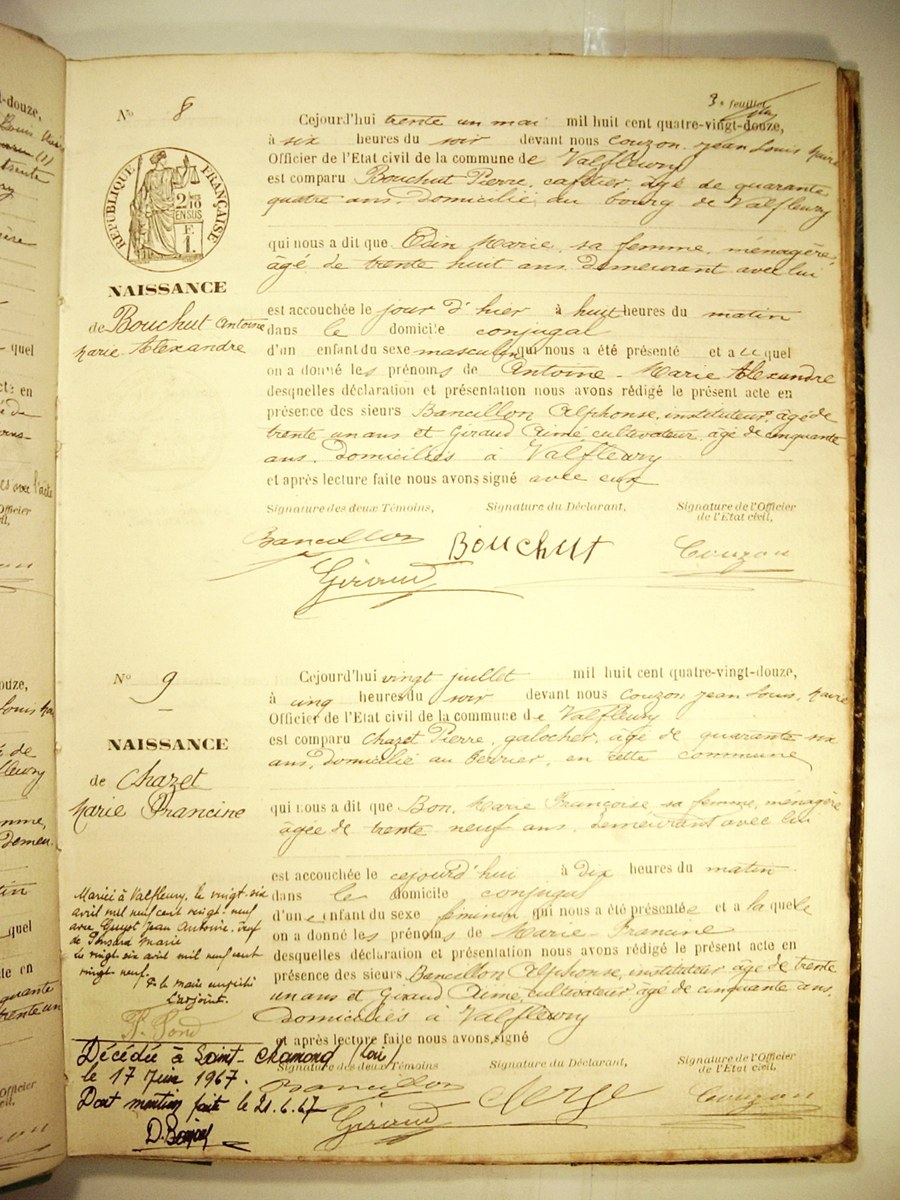 3e feuillet
No 8
RÉPUBLIQUE FRANÇAISE
2/10 EN SUS
F. 1.
NAISSANCE
de Bouchut Antoine
Marie Alexandre
Cejourd'hui trente un mai mil huit cent quatre-vingt-douze,
à six heures du soir devant nous Couzon Jean Louis, Maire
Officier de l'Etat civil de la commune de Valfleury
est comparu Bouchut Pierre, cafetier, âgé de quarante
quatre ans, domicilié au bourg de Valfleury
qui nous a dit que Odin Marie, sa femme, ménagère,
âgé de trente huit ans, demeurant avec lui
est accouchée le jour d'hier à huit heures du matin
dans le domicile conjugal
d'un enfant du sexe masculin qui nous a été présenté et auquel
on a donné les prénoms de Antoine-Marie Alexandre
desquelles déclaration et présentation nous avons rédigé le présent acte en
présence des sieurs Bancillon Alphonse, instituteur, âgé de
trente un ans et Giraud Aimé, cultivateur, âgé de cinquante
ans, domiciliés à Valfleury
et après lecture faite nous avons signé avec eux
Signature des deux Témoins, Signature du Déclarant, Signature de l'Officier
de l'Etat civil,
Bancillon Bouchut Couzon
Giraud
No 9
NAISSANCE
de Chazet
Marie Francine
Cejourd'hui vingt juillet mil huit cent quatre-vingt-douze,
à cinq heures du soir devant nous Couzon Jean Louis, Maire
Officier de l'Etat civil de la commune de Valfleury
est comparu Chazet Pierre, galocher, âgé de quarante six
ans, domicilié au Perrier, en cette commune
qui nous a dit que Bon, Marie Françoise, sa femme, ménagère
âgée de trente neuf ans, demeurant avec lui
est accouchée cejourd'hui à dix heures du matin
dans le domicile conjugal
d'une enfant du sexe féminin qui nous a été présentée et à laquelle
on a donné les prénoms de Marie-Francine
desquelles déclaration et présentation nous avons rédigé le présent acte en
présence des sieurs Bancillon Alphonse, instituteur âgé de trente
un ans et Giraud Aimé, cultivateur âgé de cinquante ans,
domiciliés à Valfleury
et après lecture faite nous avons signé
Signature des deux Témoins Signature du Déclarant, Signature de l'Officier
de l'Etat civil,
Bancillon Couzon
Giraud
Mariée à Valfleury, le vingt-six
avril mil neuf cent vingt-neuf
avec Guyot Jean Antoine, veuf
de Ponsard Marie
le vingt-six avril mil neuf cent
vingt neuf.
P. le maire empêché
L'adjoint.
Décédée à Saint-Chamond (Loire)
le 17 Juin 1967.
Dont mention faite le 21.6.67